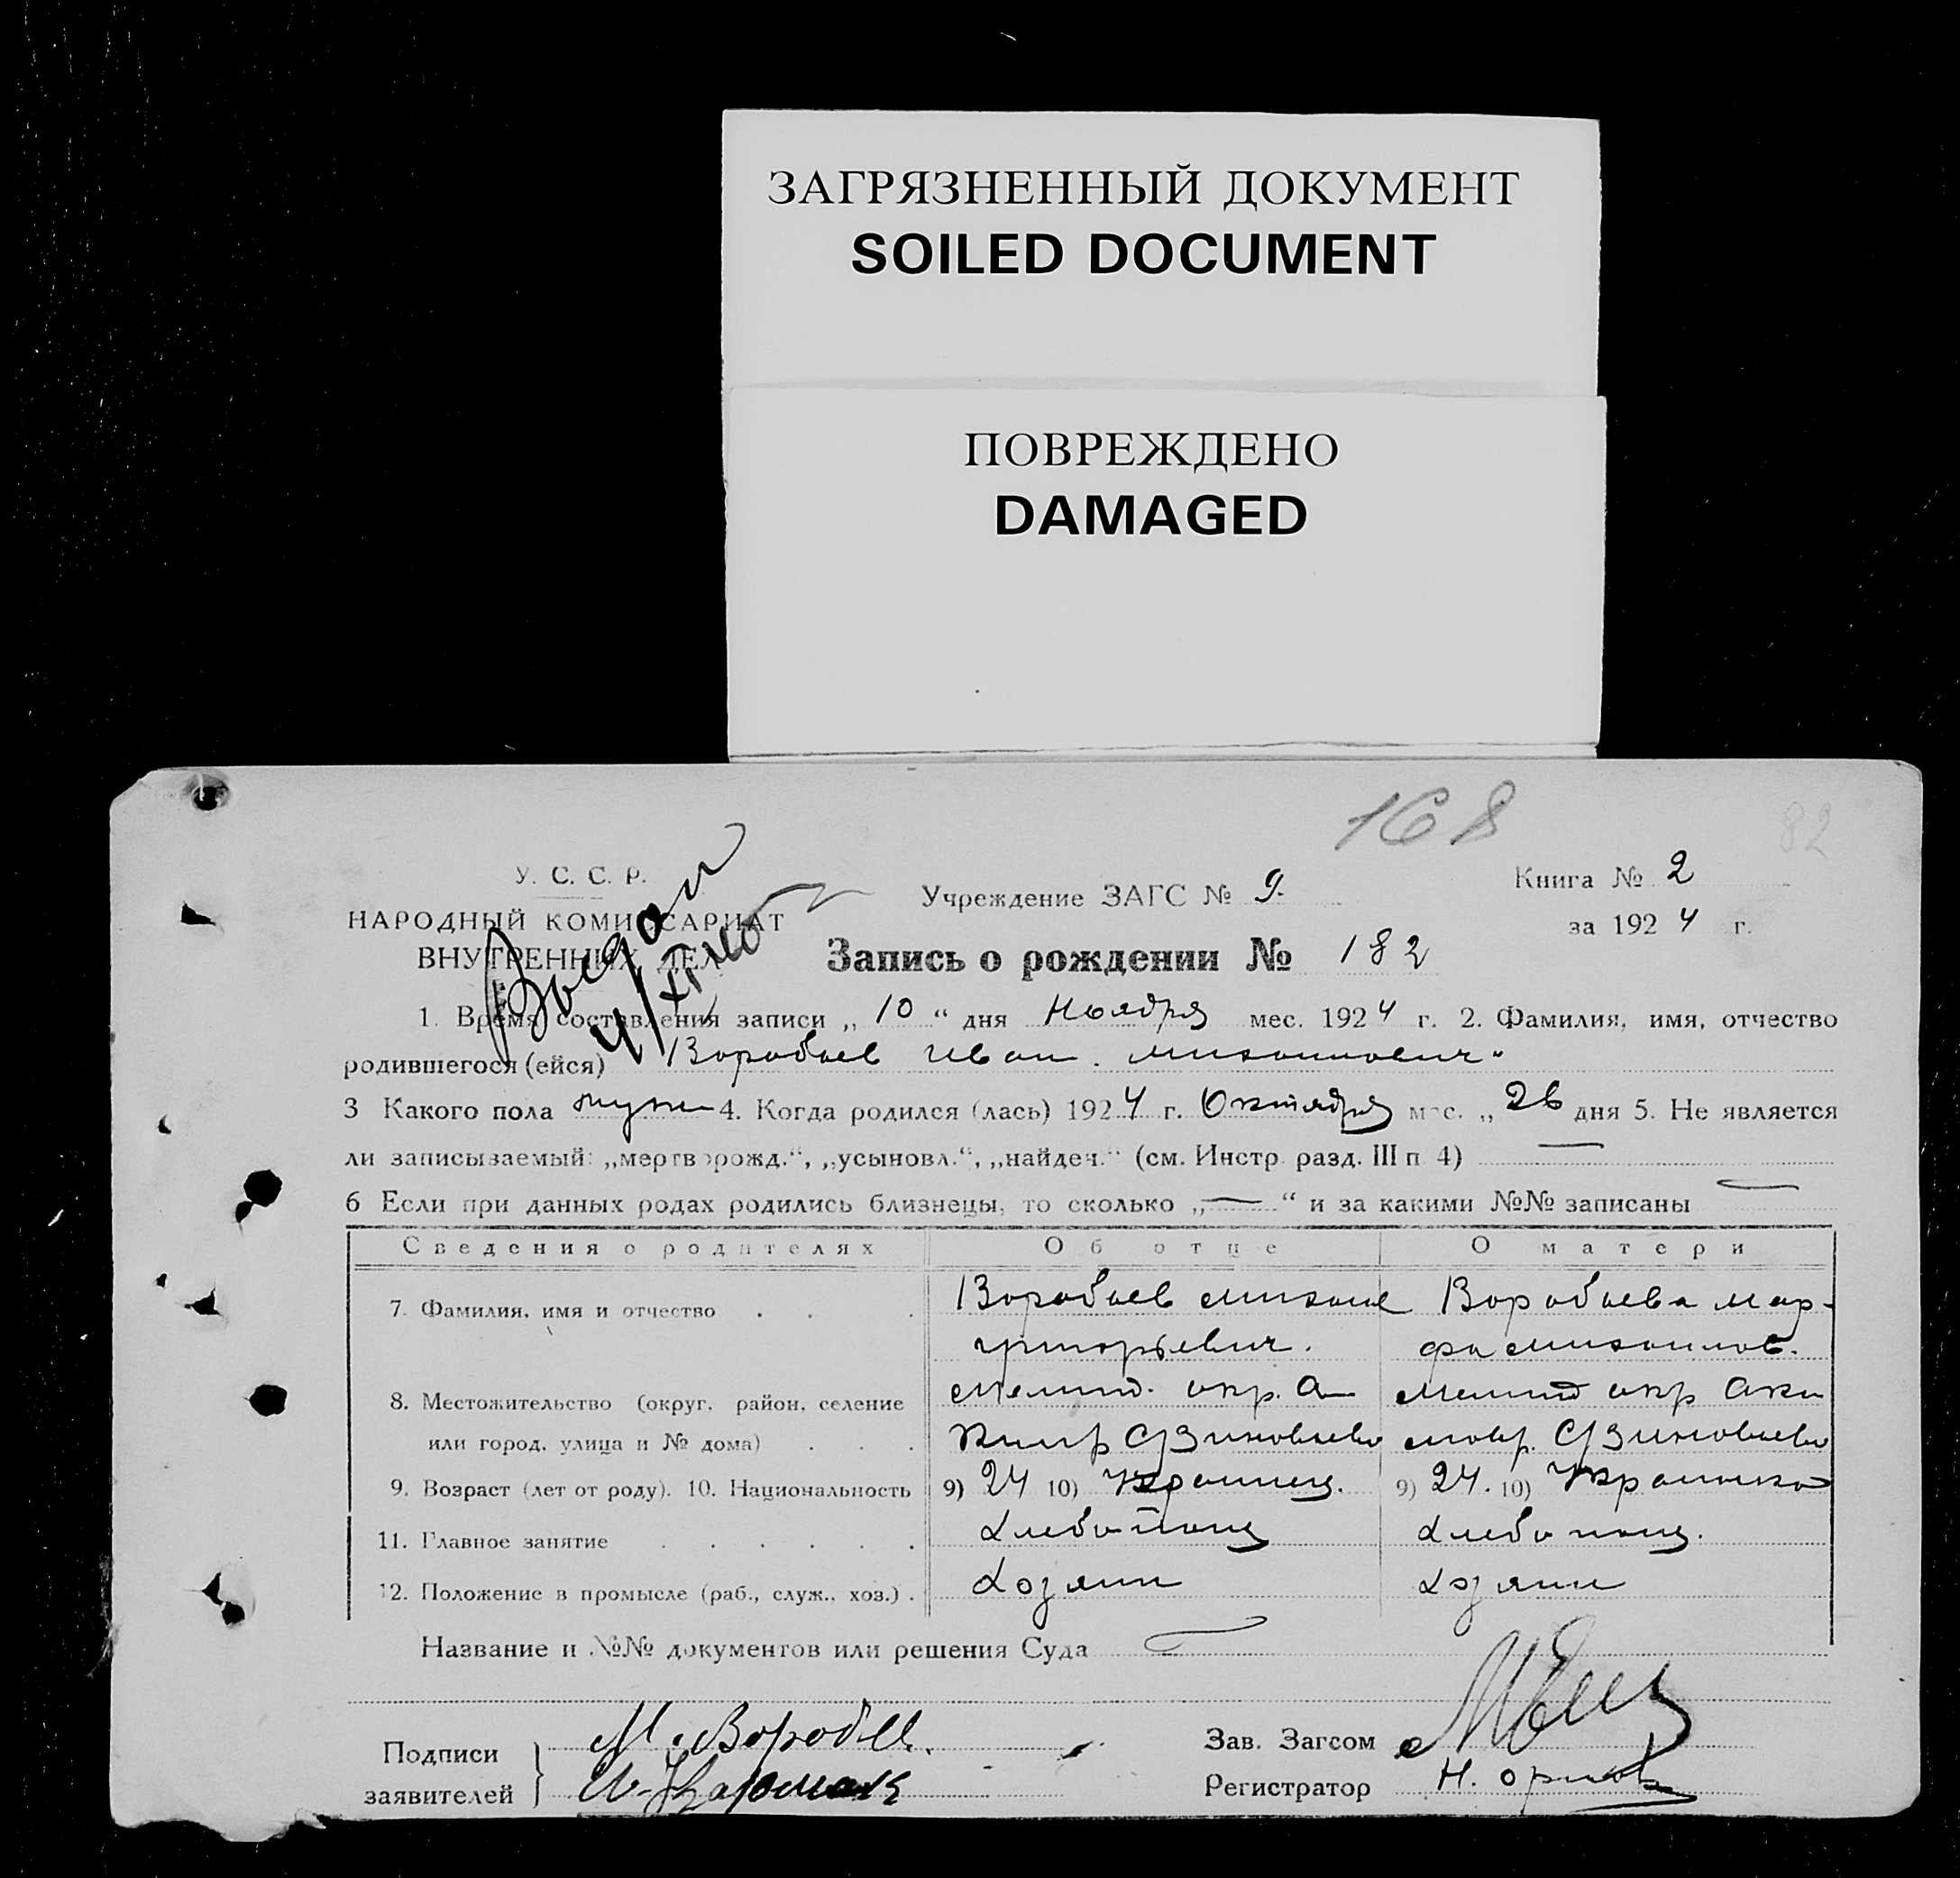 ЗАГРЯЗНЕННЫЙ ДОКУМЕНТ
SOILED DOCUMENT
ПОВРЕЖДЕНО
DAMAGED
168
82
У. С. С. Р.
НАРОДНЫЙ КОМИССАРИАТ
ВНУТРЕННИХ ДЕЛ
Учреждение ЗАГС № 9.
Книга № 2
за 1924 г.
Запись о рождении № 182
1. Время составления записи „ 10 “ дня Ноября мес. 1924 г. 2. Фамилия, имя, отчество
родившегося (ейся) Воробьев Иван Михайлович
3 Какого пола муж 4. Когда родился (лась) 1924 г. Октября мес. „ 26 дня 5. Не является
ли записываемый: „мертворожд.“, „усыновл.“, „найден.“ (см. Инстр. разд. III п 4) —
6 Если при данных родах родились близнецы, то сколько „—“ и за какими №№ записаны —
Сведения о родителях Об отце О матери
7. Фамилия, имя и отчество . . . Воробьев Михаил Воробьева Мар-
григорьевич. фа Михайлов.
8. Местожительство (округ, район, селение Мелит. окр. А Мелит окр Аки
или город, улица и № дома) . . . Кимр с/Зиновьево мовр. с/Зиновьево
9. Возраст (лет от роду). 10. Национальность 9) 24 10) Украинец. 9) 24. 10) Украинка
11. Главное занятие . . . . . . Хлебопашц Хлебопашц.
12. Положение в промысле (раб., служ., хоз.) . Хозяин Хозяин
Название и №№ документов или решения Суда —
Подписи
заявителей
М. Воробьев.
Зав. Загсом
Регистратор Н.